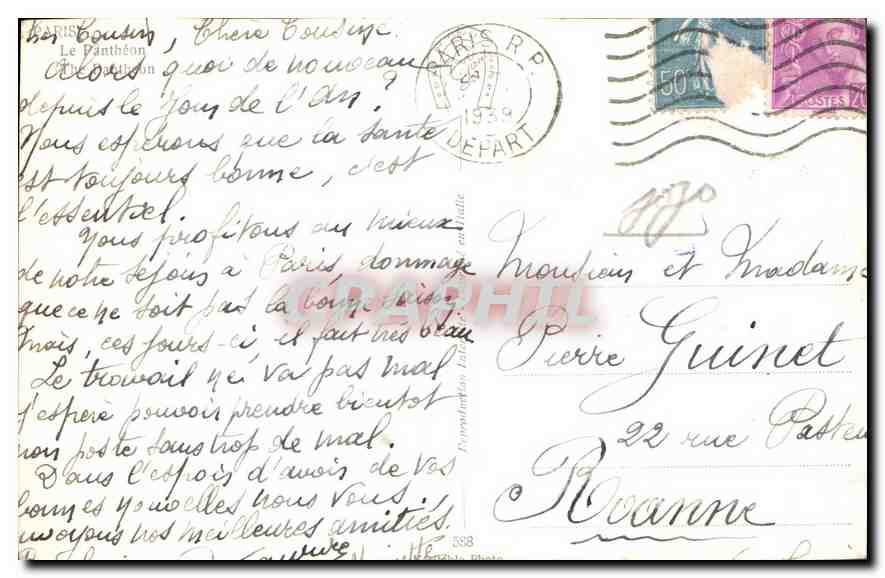 PARIS
Cher Cousin, Chère Cousine
Le Panthéon
The Pantheon
Alors quoi de nouveau
depuis le Jour de l'An ?
Nous espérons que la santé
est toujours bonne, c'est
l'essentiel.
Nous profitons au mieux
de notre séjour à Paris, dommage
que ce ne soit pas la bonne saison
Mais, ces jours-ci, il fait très beau
Le travail ne va pas mal
J'espère pouvoir prendre bientôt
mon poste sans trop de mal.
Dans l'espoir d'avoir de vos
bonnes nouvelles nous vous
envoyons nos meilleures amitiés.
PARIS R.P.
1939
DEPART
50
POSTES
20
Reproduction en Italie
CARPHIL
Monsieur et Madame
Pierre Guinet
22 rue Pasteu
Roanne
588
Photo